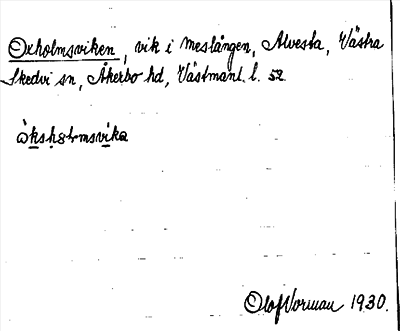 Oxholmsviken, vik i Meslången, Alvesta, Västra
Skedvi sn, Åkerbo hd, Västmanl. l. 52
Olof Vorman 1930.